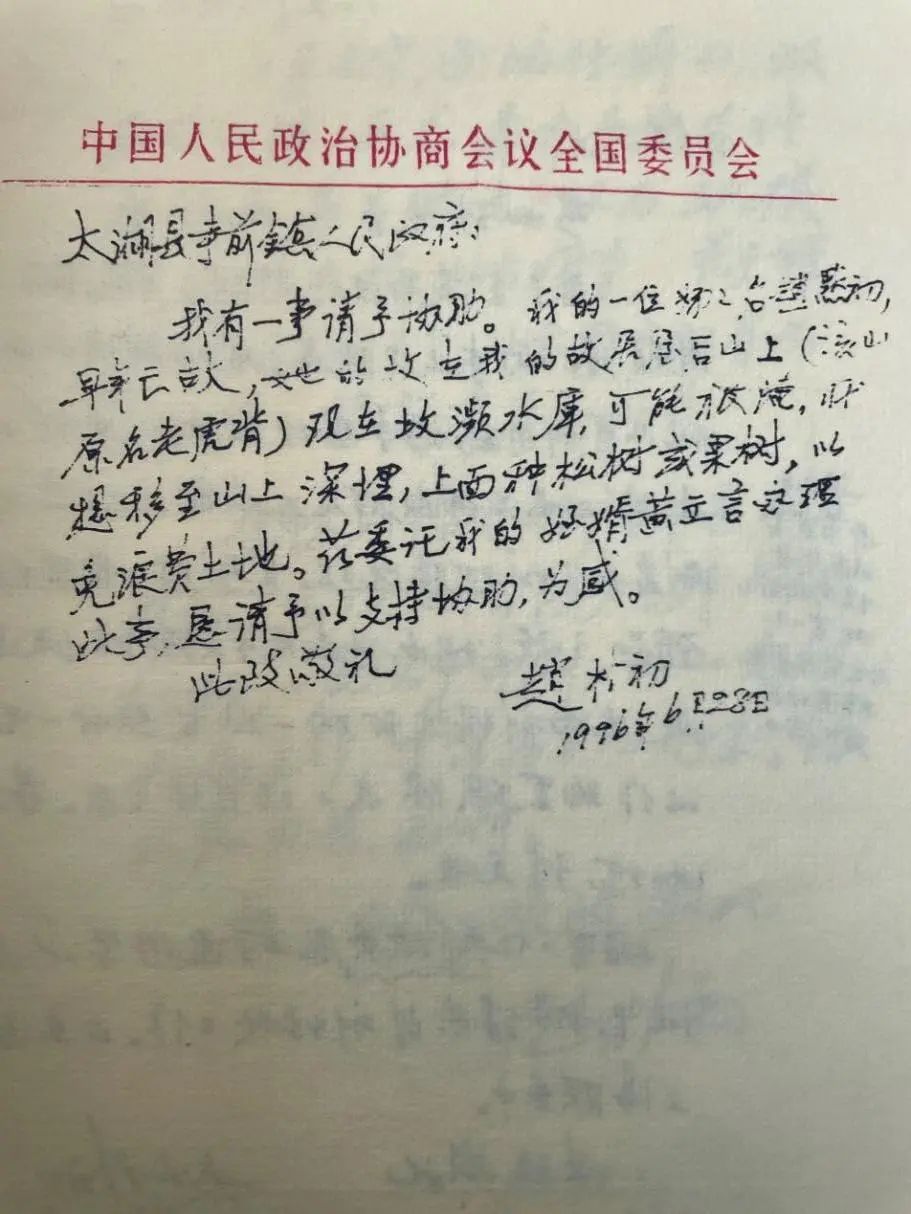 中国人民政治协商会议全国委员会
太湖县寺前镇人民政府:
我有一事请予协助。我的一位姊姊名赵默初,
早年亡故,她的坟在我的故居屋后山上(该山
原名老虎背)现在坟濒水库,可能被淹,我
想移至山上深埋,上面种松树或果树,以
免浪费土地。兹委托我的侄婿黄立言办理
此事,恳请予以支持协助,为感。
此致敬礼
赵朴初
1996年6月28日